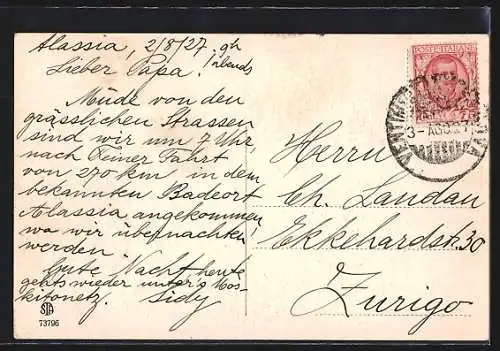 Alassia, 2/8/27, 9h
abends
Lieber Papa!
Müde von den
grässlichen Strassen
sind wir um 7 Uhr,
nach einer Fahrt
von 270 km in dem
bekannten Badeort
Alassia angekommen,
wo wir übernachten
werden.
Gute Nacht, heute
gehts wieder unter's Mos-
kitonetz. Sidy
STA
73796
POSTE ITALIANE
3-AGO
Herrn
Ch. Landau
Ekkehardstr. 30
Zurigo